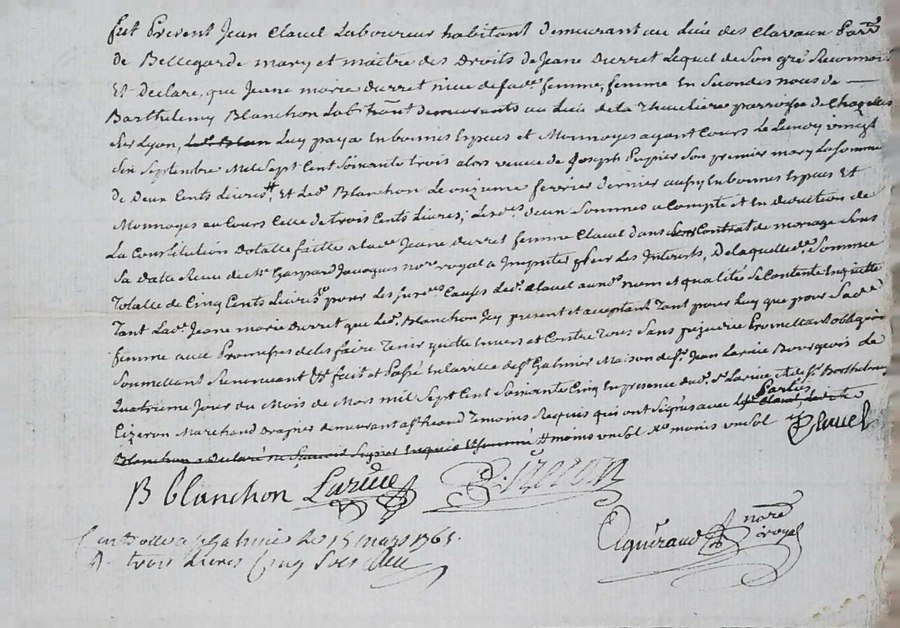 fut Present Jean Clauel Laboureur habitant demeurant au Lieu des Clavaux Parr.
de Bellegarde mary et maitre des Droits de Jeane Durret Lequel de Son gré Reconnoit
Et Declare, que Jeane marie Durret niece de sad.e femme, femme En Secondes noces de
Barthelemy Blanchon Lab.r demeurants au Lieu de La parroisse de Chazelles
Sur Lyon, Luy paya En bonnes Especes et Monnoyes ayant Cours Le vingt
Six Septembre Mil Sept Cent Soixante trois alors veuve de Joseph Pupier Son premier mary La Somme
de Deux Cents Livres, Et Led. Blanchon Le onzieme fevrier dernier aussy En bonnes Especes Et
Monnoyes au Cours Celle de trois Cents Livres; Lesd.es deux Sommes a Compte et En deduction de
La Constitution Dotalle faitte a lad. Jeane Durret femme Clauel dans Contrat de mariage Sous
Sa Datte Receu de M.e Gaspard Jacoques no.re royal a Les Interets, De laquelle d.e Somme
Totalle de Cinq Cents Livres pour Les Causes Led. Clauel au nom et qualité Se Contente En quitte
Tant Lad. Jeane marie Durret que Led. Blanchon Icy present et acceptant Tant pour Luy que pour Sad.e
femme avec Promesses de les faire Tenir quitte Envers et Contre Tous Sans prejudice Promettant obligeant
Soumettant Renonceant fait et Passé En la ville de S.t Galmier Maison de S.r Jean Larive Bourgeois Le
Quatrieme Jour du Mois de Mars Mil Sept Cent Soixante Cinq En presence dud. S.r Larive, & de S.r Barthelemy
Cizeron Marchand Drapier demeurant a S.t heand Temoins Requis qui ont Signés avec Les Parties
Blanchon a Declaré ne Scavoir Signer Enquis Et Sommé moins un Sol moins un Sol Clauel
B blanchon Larive Cizeron
Peguéraud no.re royal
Controllé a S.t Galmier Le 15 mars 1765.
R. trois Livres Cinq Sols